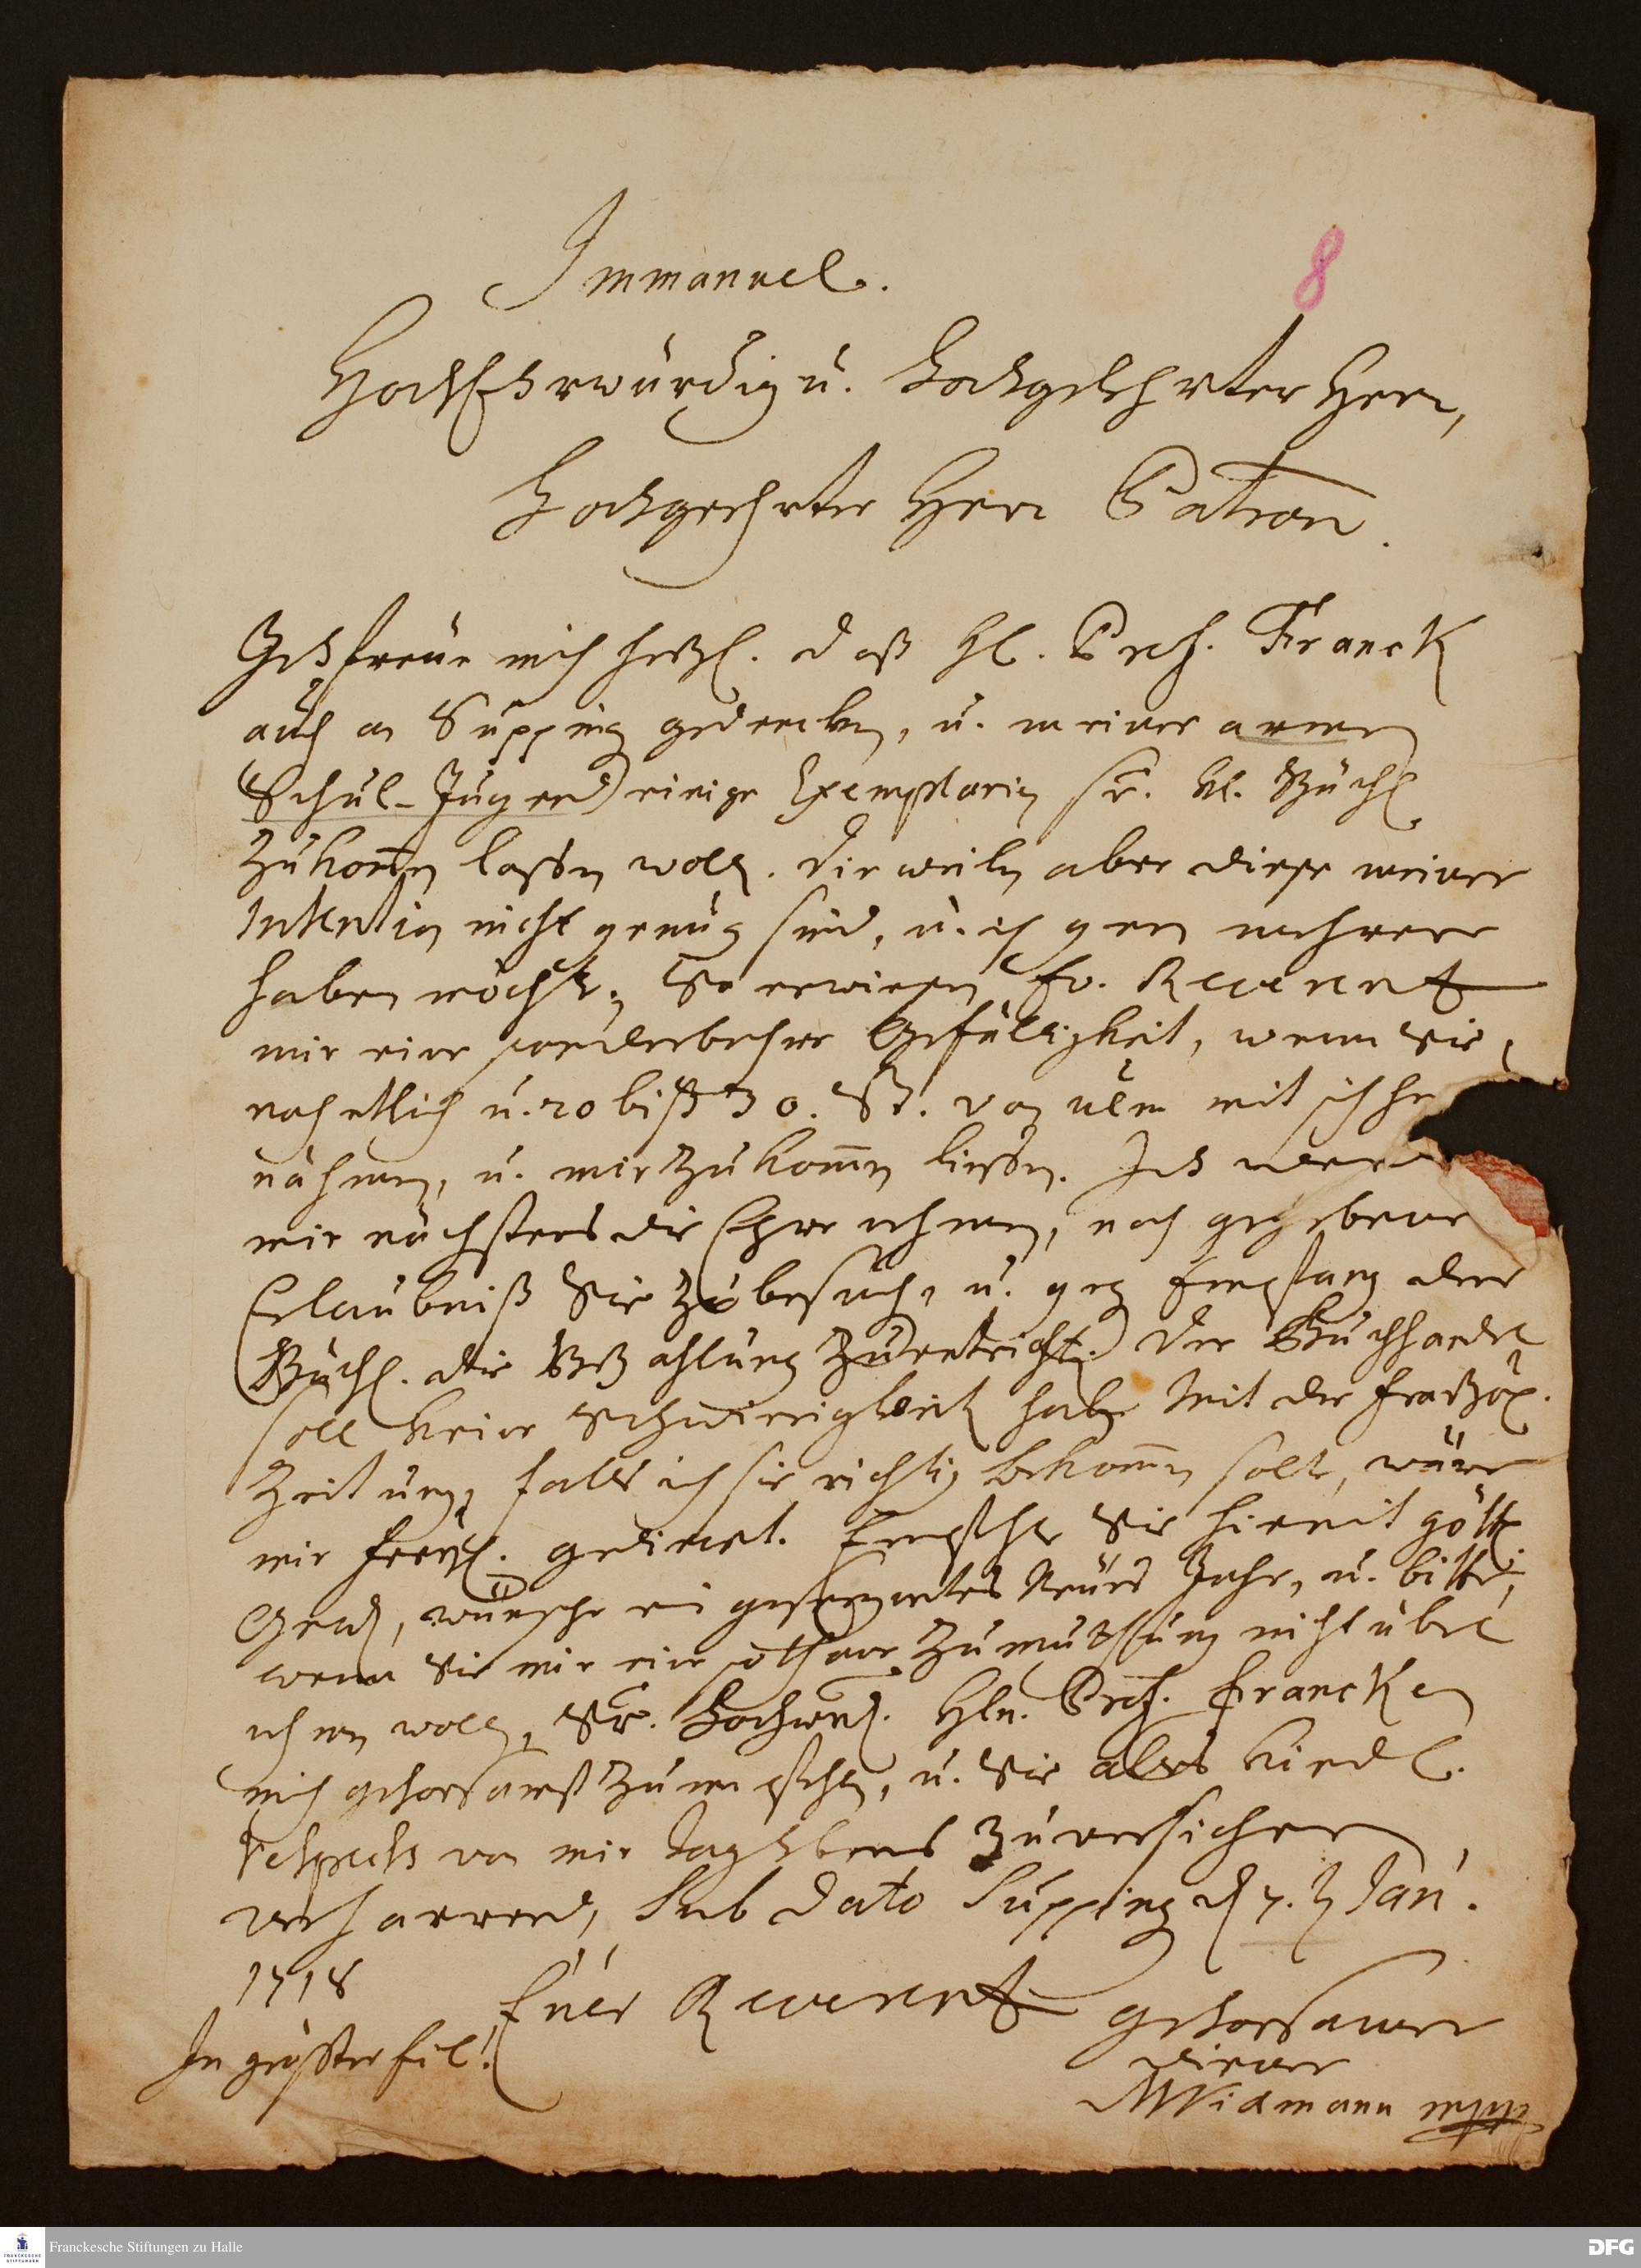 Immanuel.
8
HochEhrwürdig u. Hochgelehrter Herr,
Hochgeehrter Herr Patron.
Ich freue mich hertzl. daß Hl. Prof. Franck
auch an Supping gedencken, u. meiner armen
Schul-Jugend einige Exemplarien sr. kl. Büchl.
zukommen lassen wollen. Dieweilen aber diese meiner
Intention nicht genug sind, u. ich gern mehrere
haben möchte; So erwiesen Ew. Reverentz
mir eine sonderbahre Gefälligkeit, wenn Sie,
noch etlich u. 20 biß 30. St. von Ulm mit sich
nähmen, u. mir zukommen liessen. Ich
mir nächstens die Ehre nehmen, nach gegebener
Erlaubniß Sie zu besuchen, u. geg. Empfang der
Büchl. die Bezahlung zu entrichten. Der Buchhandel
soll keine Schwierigkeit haben. Mit der Frantzös.
Zeitung, falls ich sie richtig bekommen solte, wäre
mir gedienet. Empfehle Sie hiemit göttl.
Gnad, wünsche ein gesegnetes Neues Jahr, u. bitte,
wenn Sie mir eine solche Zumuthung nicht übel
nehmen wollen, Sr. Hochwürd. Hln. Prof. Francken
mich gehorsamst zu empfehlen, u. Sie alles
respects von mir zu versichern
verharrend, Sub dato Supping d. 7. Jan.
1718
Euer Reverentz
gehorsamer
Diener
In größter Eil!
MWidmann mpp
Franckesche Stiftungen zu Halle
FRANCKESCHE
STIFTUNGEN
DFG